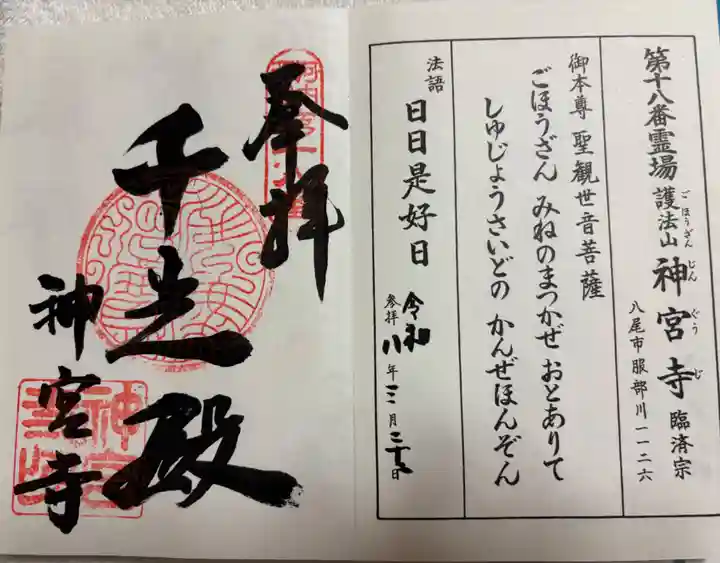 第十八番霊場 護法山 神宮寺 臨済宗
ごほうざん じんぐうじ
八尾市服部川一一二六
御本尊 聖観世音菩薩
ごほうざん みねのまつかぜ おとありて
しゆじょうさいどの かんぜほんぞん
法語 日日是好日
参拝 令和八年三月二十日
奉拝
千光殿
神宮寺